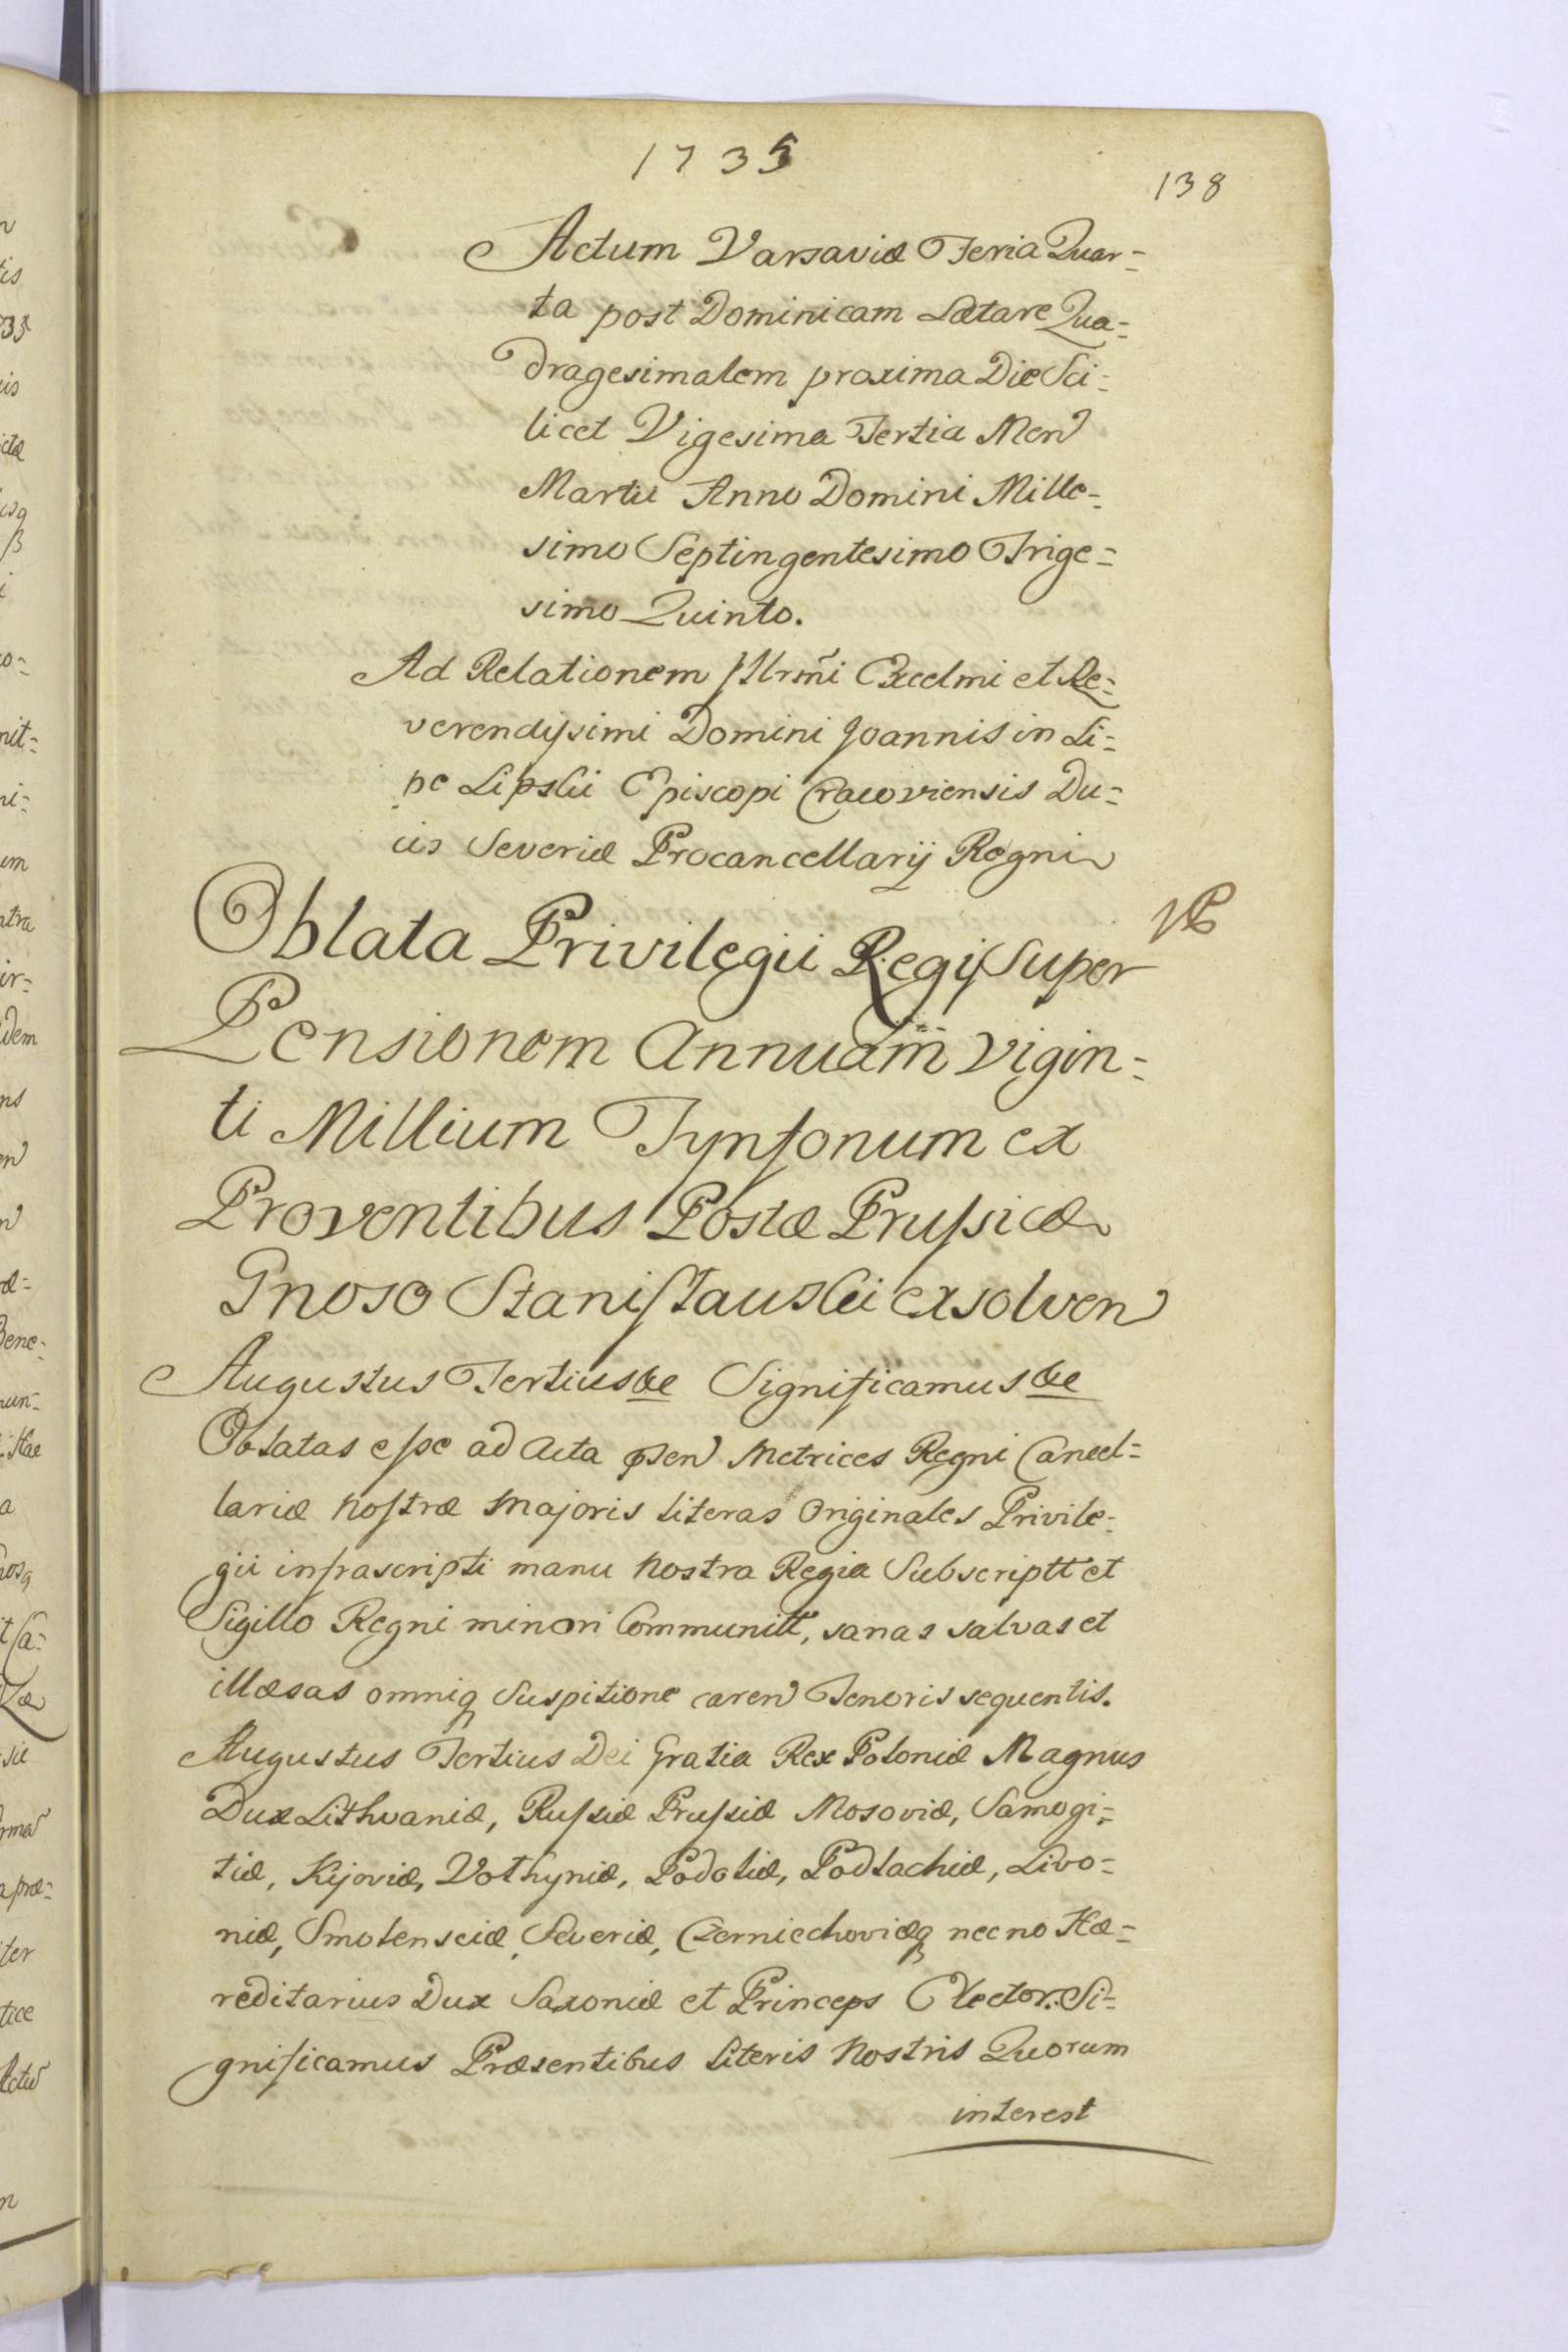 1735
138
Actum Varsaviæ Feria Quar=
ta post Dominicam Lætare Qua=
dragesimalem proxima Die Sci=
licet Vigesima Tertia Men
Martii Anno Domini Mille=
simo Septingentesimo Trige=
simo Quinto.
Ad Relationem Illrm̃i Excelmi et Re=
verendissimi Domini Joannis in Li=
pe Lipski Episcopi Cracoviensis Du=
cis Severiæ Procancellarij Regni
Oblata Privilegii Regij Super
Pensionem Annuam Vigin=
ti Millium Tynfonum ex
Proventibus Postæ Prussicæ
Gnoso Stanisławski exsolven
Augustus Tertius &c Significamus &c
Oblatas esse ad Acta psen Metrices Regni Cancel=
lariæ Nostræ Majoris literas Originales Privile=
gii infrascripti manu Nostra Regia Subscriptt et
Sigillo Regni minori Communitt, sanas salvas et
illæsas omniq suspitione caren Tenoris sequentis.
Augustus Tertius Dei Gratia Rex Poloniæ Magnus
Dux Lithvaniæ, Russiæ Prussiæ Mosoviæ, Samogi=
tiæ, Kijoviæ, Volhyniæ, Podoliæ, Podlachiæ, Livo=
niæ, Smolensciæ, Severiæ, Czerniechoviæq necno Hæ=
reditarius Dux Saxoniæ et Princeps Elector. Si=
gnificamus Præsentibus Literis Nostris Quorum
interest